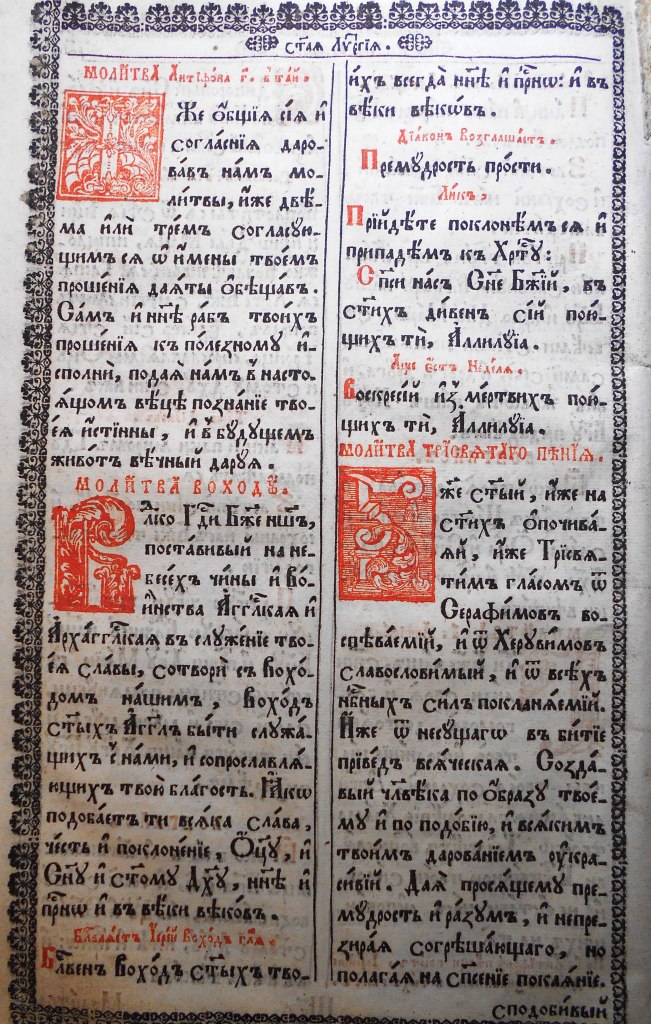 СТ҃АЯ ЛѴТРГІ́Я.
МОЛИ́ТВА Антіфѡ́на г҃. в̾ та́й.
И҆́Же О҆́бщїѧ сїѧ̀ и҆
согла́снїѧ даро-
ва́въ на́мъ мо-
ли́твы, и҆́же двѣ-
ма и҆лѝ тре́мъ согласꙋю-
щимъ сѧ ѡ҆ и҆́мены твое́мъ
проше́нїѧ даѧ́ты ѡ҆бѣща́въ.
Са́мъ и҆ нн҃ѣ ра́бъ твои́хъ
проше́нїѧ къ поле́зномꙋ и҆-
спо́лни, пода́ѧ на́мъ в̾ насто-
ѧ́щомъ вѣ́цѣ позна́нїе тво-
еѧ̀ и҆́стинны, и҆ в̾ бꙋ́дꙋщемъ
живо́тъ вѣ́чный да́рꙋѧ.
МОЛИ́ТВА ВОХО́ДꙊ.
Влⷣко Гдⷭ҇и Бж҃е нш҃ъ,
поста́вивый на не-
бесе́хъ чи́ны и҆ во́-
и҆нства А҆гг҃лскаѧ и҆
А҆рха́гг҃лскаѧ въ слꙋже́нїе тво-
еѧ̀ сла́вы, сотворѝ съ вохо́-
домъ на́шимъ, вохо́дъ
ст҃ы́хъ А҆́гг҃лъ бы́ти слꙋжа́-
щихъ с̾ на́ми, и҆ сопрославлѧ́-
ющихъ твою̀ бла́гость. Ꙗ҆́кѡ
подоба́етъ ти всѧ́ка сла́ва,
че́сть и҆ поклоне́нїе, Ѻ҆ц҃ꙋ̀, и҆
Сн҃ꙋ и҆ ст҃о́мꙋ Дх҃ꙋ, нн҃ѣ и҆
при́снѡ и҆ въ вѣ́ки вѣко́въ.
Блгⷭ҇влѧ́етъ І҆ере́й Вохо́дъ гл҃ѧ.
Блⷭ҇ве́нъ Вохо́дъ ст҃ы́хъ тво-
и́хъ всегда̀ нн҃ѣ и҆ прⷭ҇нѡ: и҆ въ
вѣ́ки вѣкѡ́въ.
Дїа́конъ Возглаша́етъ.
Премꙋ́дрость про́сти.
Ли́къ:
Прїйдѣ́те покло́немъ сѧ и҆
припаде́мъ къ Хрⷭ҇тꙋ̀:
Сп҃си на́съ Сн҃е Бж҃їй, въ
ст҃и́хъ ди́венъ сі́й пою́-
щихъ тѝ, А҆ллилꙋ́їа.
А҆́ще є҆́стъ Недѣ́лѧ.
Воскресі́й и҆з̾ ме́ртвихъ пою́-
щихъ тѝ, А҆ллилꙋ́їа.
МОЛИ́ТВА ТРИСВѦТА́ГО ПѢ́НІѦ.
Бж҃е ст҃ы́й, и҆́же на
ст҃и́хъ ѡ҆почива́-
ѧй, и҆́же Трїсвѧ-
ти́мъ гла́сомъ ѿ
Серафі́мовъ во-
спѣва́емїй, и҆ ѿ Херꙋви́мовъ
славослови́мый, и҆ ѿ всѣ́хъ
нб҃ныхъ си́лъ покланѧ́емїй.
И҆́же ѿ не сꙋ́щагѡ въ би́тїе
прїве́дъ всѧ́ческаѧ. Созда́-
вый чл҃вѣ́ка по ѻ҆́бразꙋ твое́-
мꙋ и҆ по подо́бїю, и҆ всѧ́кимъ
твои́мъ дарова́нїемъ ᲂу҆кра-
си́вїй. Даѧ́й просѧ́щемꙋ пре-
мꙋ́дрость и҆ ра́зꙋмъ, и҆ не пре-
зира́ѧ согрѣша́ющаго, но
полага́ѧ на сп҃се́нїе покаѧ́нїе.
сподоби́вый